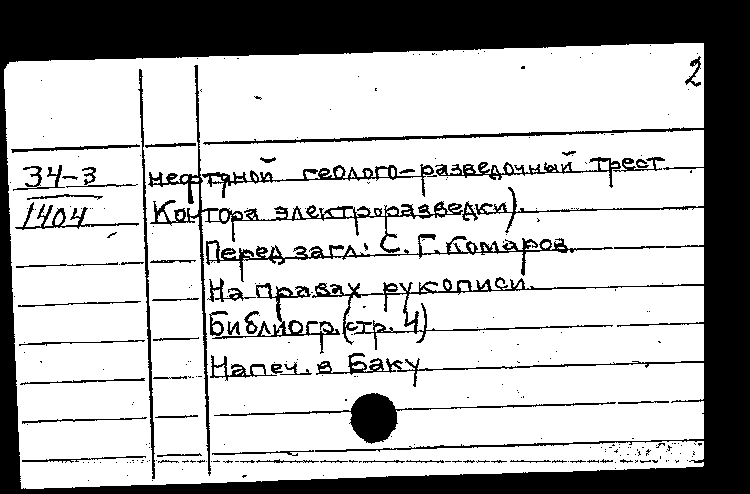 2
34-3
1404
нефтяной геолого-разведочный трест.
Контора электроразведки).
Перед загл.: С. Г. Комаров.
На правах рукописи.
Библиогр. (стр. 4)
Напеч. в Баку